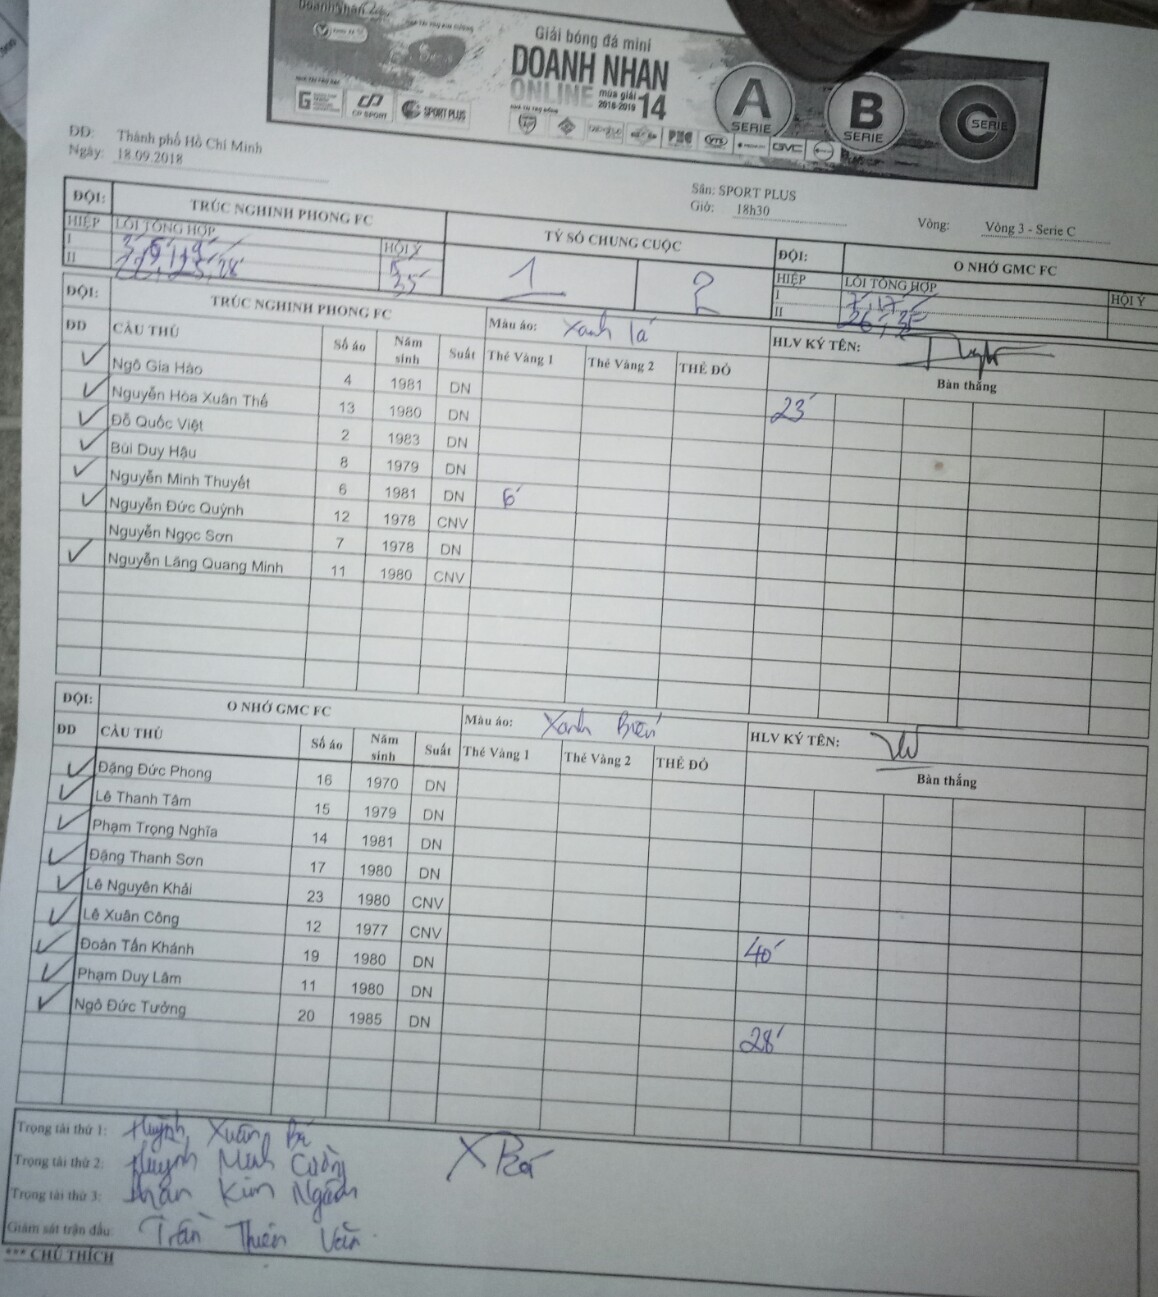 Giải bóng đá mini
DOANH NHAN
ONLINE mùa giải 2018-2019 14
SPORT PLUS
A SERIE
B SERIE
C SERIE
GVC
ĐĐ: Thành phố Hồ Chí Minh
Ngày: 18.09.2018
Sân: SPORT PLUS
Giờ: 18h30
Vòng: Vòng 3 - Serie C
ĐỘI: TRÚC NGHINH PHONG FC TỶ SỐ CHUNG CUỘC ĐỘI: O NHỚ GMC FC
HIỆP LỖI TỔNG HỢP HỘI Ý 1 2 HIỆP LỖI TỔNG HỢP HỘI Ý
I I 7, 17
II 35 II
ĐỘI: TRÚC NGHINH PHONG FC Màu áo: Xanh lá HLV KÝ TÊN:
ĐD CẦU THỦ Số áo Năm sinh Suất Thẻ Vàng 1 Thẻ Vàng 2 THẺ ĐỎ Bàn thắng
Ngô Gia Hào 4 1981 DN 23'
Nguyễn Hòa Xuân Thế 13 1980 DN
Đỗ Quốc Việt 2 1983 DN
Bùi Duy Hậu 8 1979 DN
Nguyễn Minh Thuyết 6 1981 DN 6'
Nguyễn Đức Quỳnh 12 1978 CNV
Nguyễn Ngọc Sơn 7 1978 DN
Nguyễn Lăng Quang Minh 11 1980 CNV
ĐỘI: O NHỚ GMC FC Màu áo: Xanh Biển HLV KÝ TÊN:
ĐD CẦU THỦ Số áo Năm sinh Suất Thẻ Vàng 1 Thẻ Vàng 2 THẺ ĐỎ Bàn thắng
Đặng Đức Phong 16 1970 DN
Lê Thanh Tâm 15 1979 DN
Phạm Trọng Nghĩa 14 1981 DN
Đặng Thanh Sơn 17 1980 DN
Lê Nguyên Khải 23 1980 CNV
Lê Xuân Công 12 1977 CNV
Đoàn Tấn Khánh 19 1980 DN 40'
Phạm Duy Lâm 11 1980 DN
Ngô Đức Tưởng 20 1985 DN
28'
Trọng tài thứ 1: Huỳnh Xuân Bá
Trọng tài thứ 2: Huỳnh Minh Cường
Trọng tài thứ 3: Kim Ngânh
Giám sát trận đấu: Trần Thiên Văn
*** CHÚ THÍCH